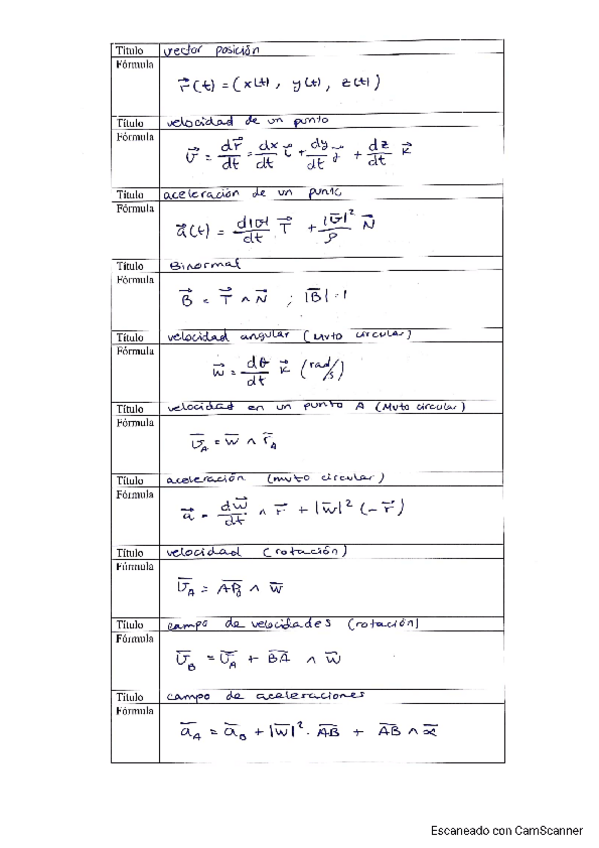 Título vector posición
Fórmula
r⃗(t) = (x(t), y(t), z(t))
Título velocidad de un punto
Fórmula
v⃗ = dr⃗/dt = dx/dt i⃗ + dy/dt j⃗ + dz/dt k⃗
Título aceleración de un punto
Fórmula
a⃗(t) = d|v̄|/dt T⃗ + |v̄|²/ρ N⃗
Título Binormal
Fórmula
B⃗ = T⃗ ∧ N⃗ ; |B̄| = 1
Título velocidad angular (Mvto circular)
Fórmula
w⃗ = dθ/dt k⃗ (rad/s)
Título velocidad en un punto A (Mvto circular)
Fórmula
v̄_A = w̄ ∧ r̄_A
Título aceleración (mvto circular)
Fórmula
a⃗ = dw⃗/dt ∧ r⃗ + |w⃗|² (-r⃗)
Título velocidad (rotación)
Fórmula
v̄_A = AP₀ ∧ w̄
Título campo de velocidades (rotación)
Fórmula
v̄_B = v̄_A + BA ∧ w̄
Título campo de aceleraciones
Fórmula
ā_A = ā_B + |w̄|² · AB + AB ∧ ᾱ
Escaneado con CamScanner